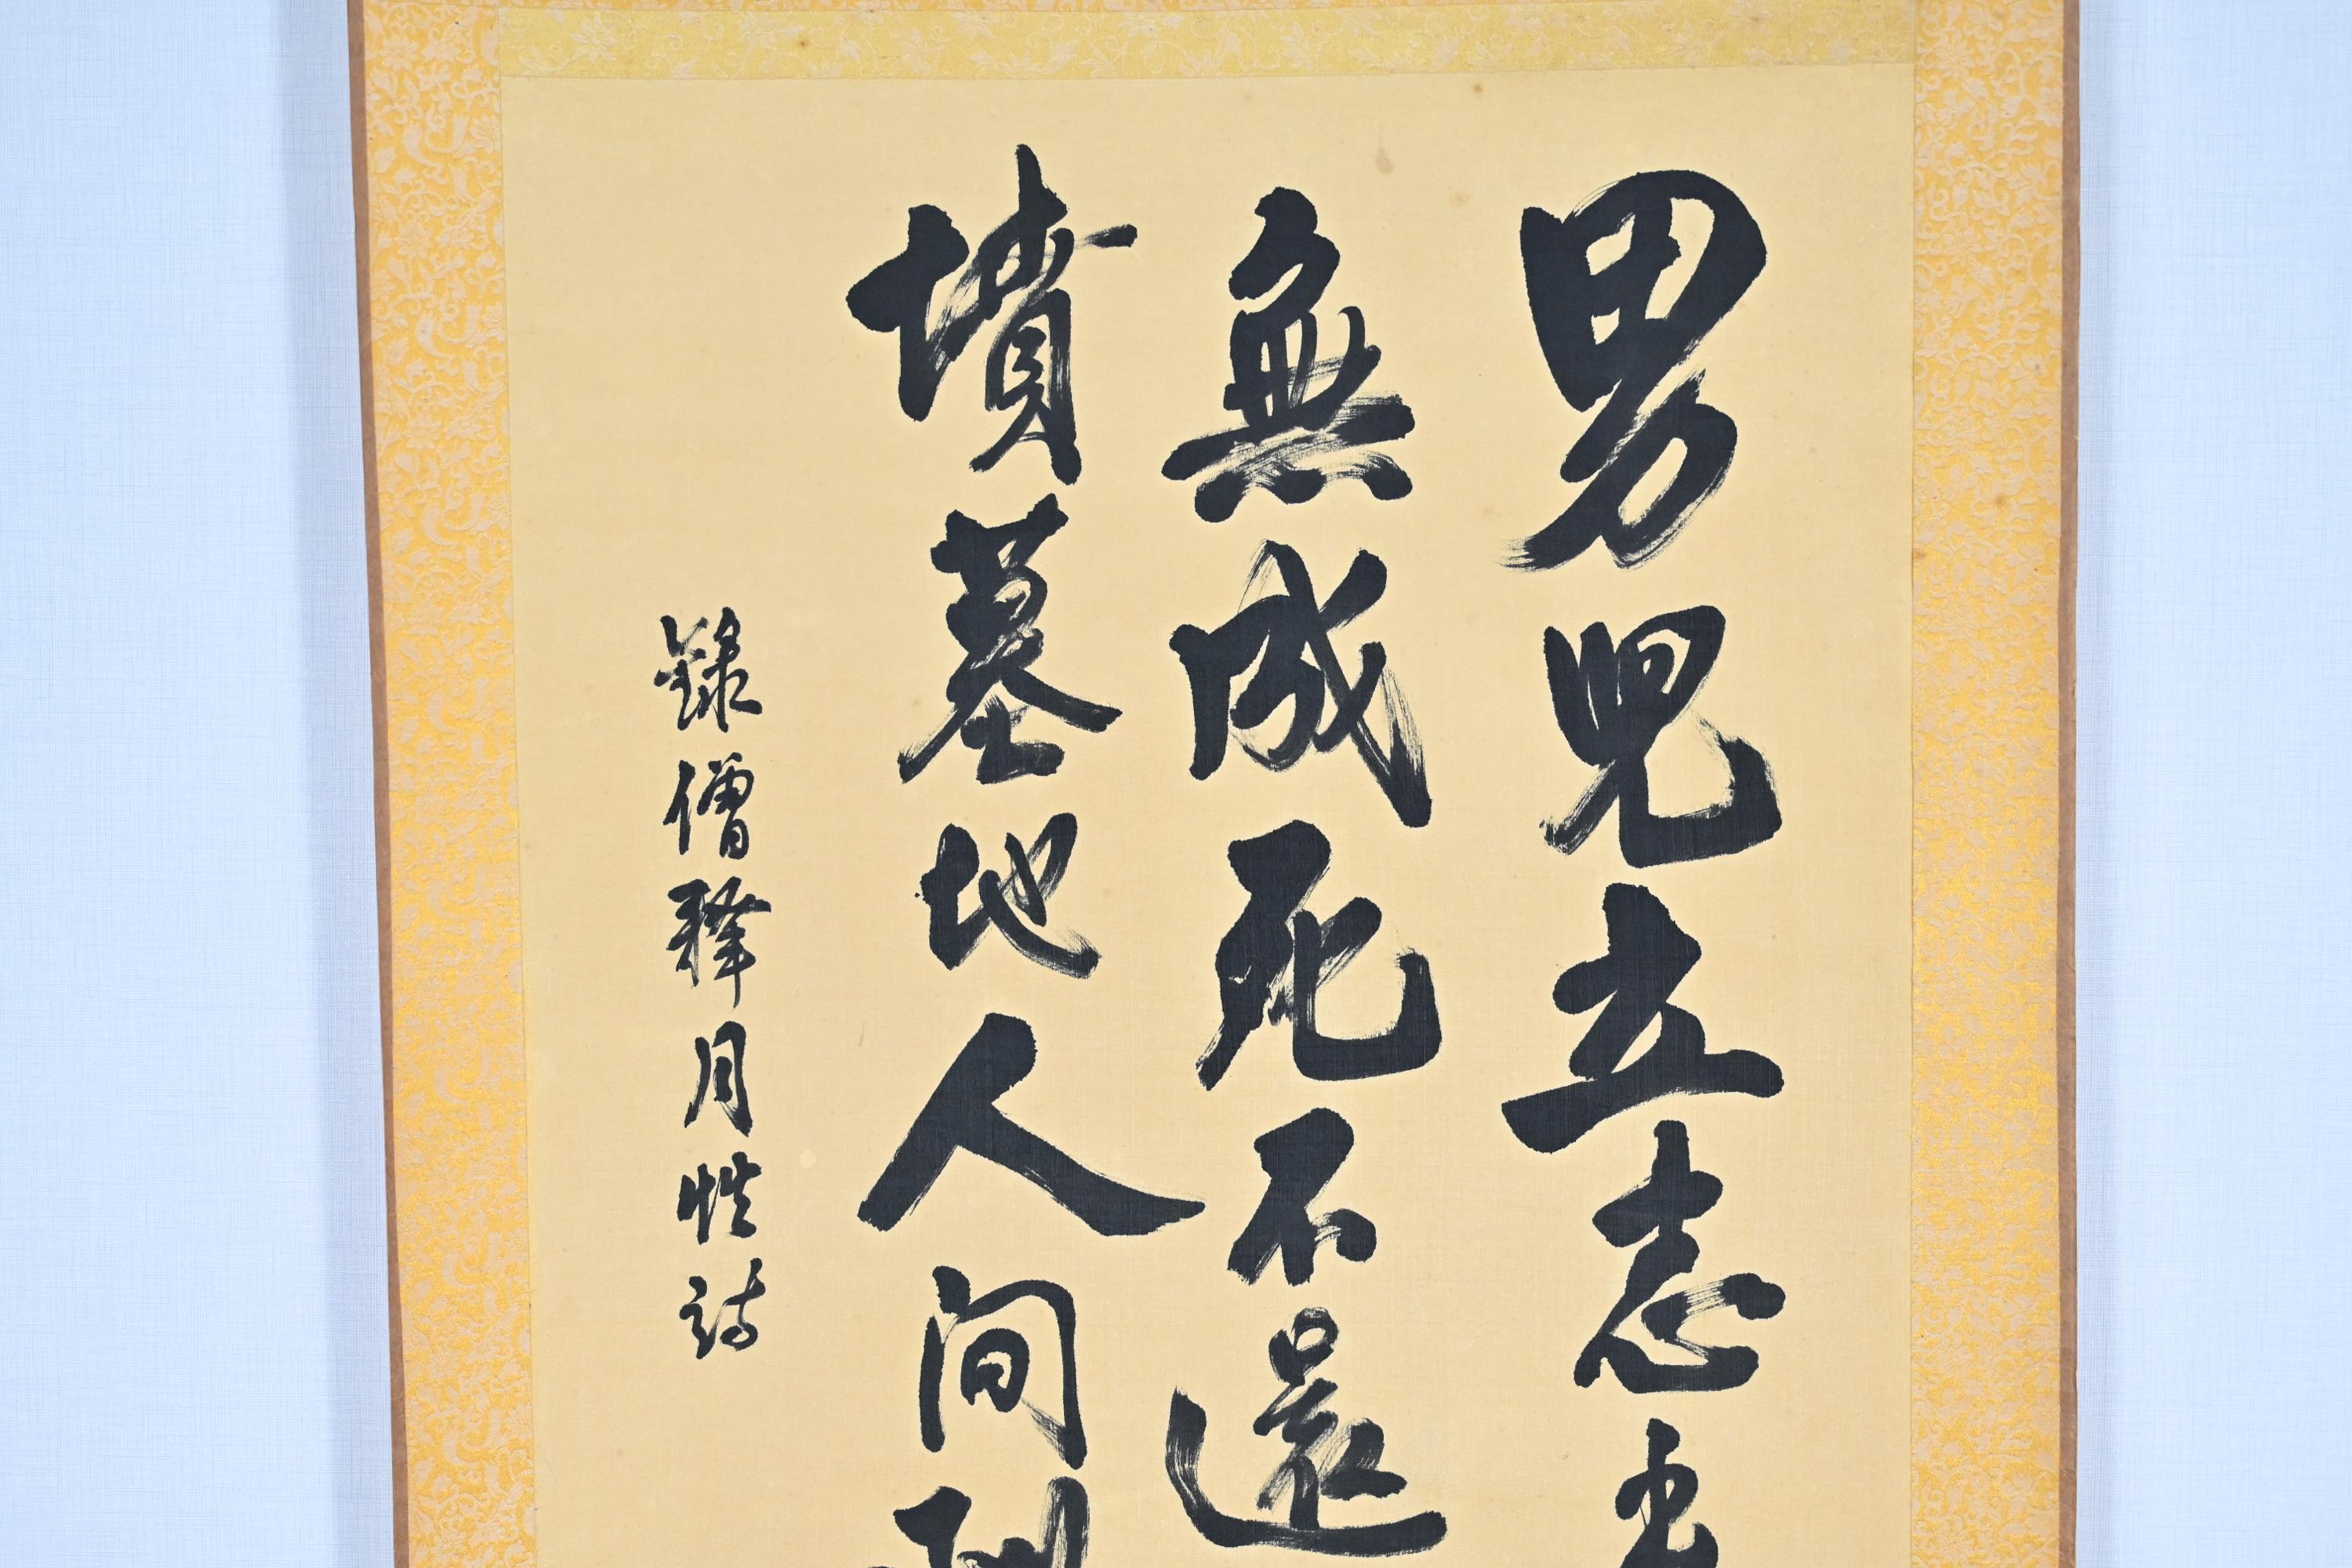 男児立志出
無成死不還
墳墓地人間到
録僧釋月性詩